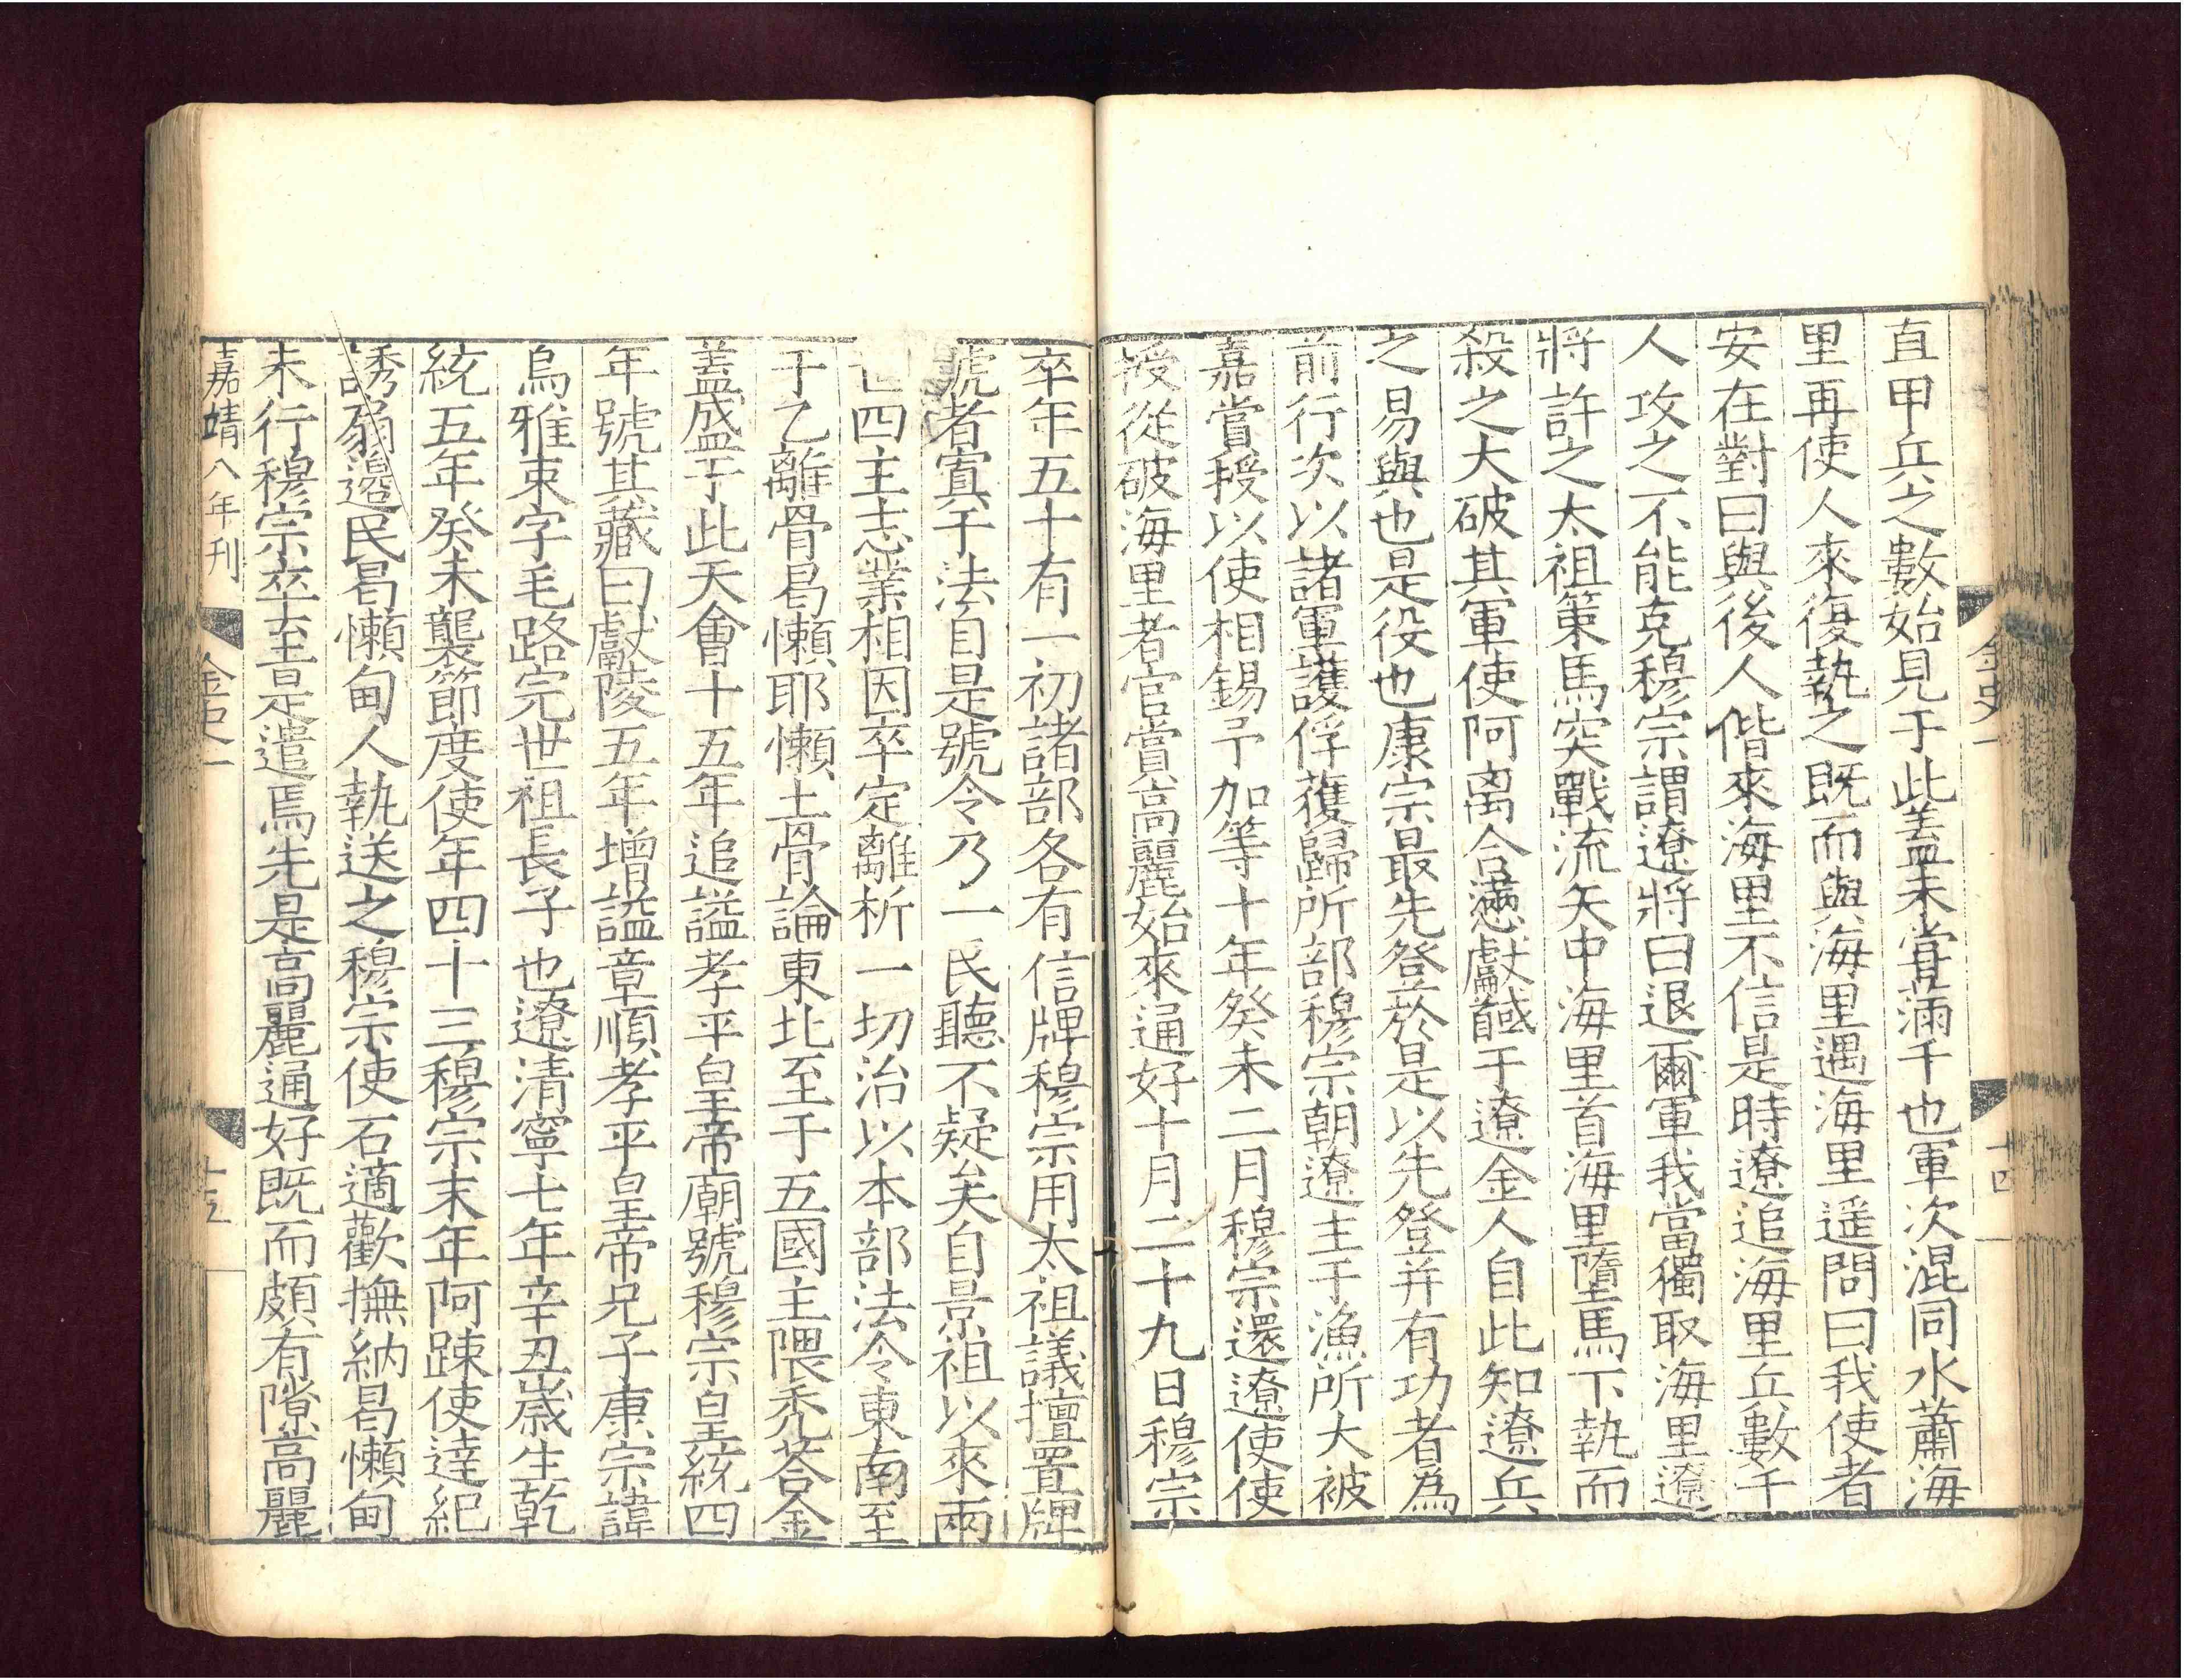 直甲兵之數始見于此盖未嘗滿千也軍次混同水蕭海
里再使人來復執之既而與海里遇海里遥問曰我使者
安在對曰與後人偕來海里不信是時遼追海里兵數千
人攻之不能克穆宗謂遼將曰退爾軍我當獨取海里遼
將許之太祖策馬突戰流矢中海里首海里墮馬下執而
殺之大破其軍使阿离合懣獻馘于遼金人自此知遼兵
之易與也是役也康宗最先登於是以先登并有功者為
前行次以諸軍護俘獲歸所部穆宗朝遼主于漁所大被
嘉賞授以使相錫予加等十年癸未二月穆宗還遼使使
授從破海里者官賞高麗始來通好十月二十九日穆宗
金史一
十四
卒年五十有一初諸部各有信牌穆宗用太祖議擅置牌
號者寘于法自是號令乃一民聽不疑矣自景祖以來兩
世四主志業相因卒定離析一切治以本部法令東南至
于乙離骨曷懶耶懶土骨論東北至于五國主隈禿荅金
盖盛于此天會十五年追謚孝平皇帝廟號穆宗皇統四
年號其藏曰獻陵五年增謚章順孝平皇帝兄子康宗諱
烏雅束字毛路完世祖長子也遼清寧七年辛丑歲生乾
統五年癸未襲節度使年四十三穆宗末年阿踈使達紀
誘扇邊民曷懶甸人執送之穆宗使石適歡撫納曷懶甸
未行穆宗卒至是遣焉先是高麗通好既而頗有隙高麗
嘉靖八年刊
金史一
十五